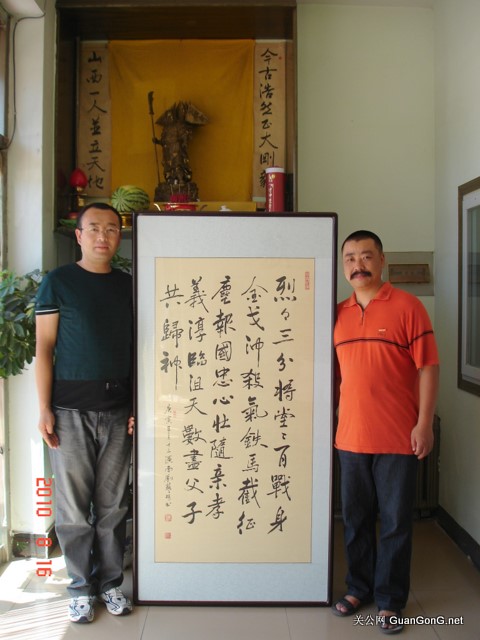 今古浩然正大剛毅
山西一人並立天地
烈々三分將堂々百戰身
金戈沖殺氣鉄馬截征
塵報國忠心壯隨亲孝
義淳臨沮天數盡父子
共歸神
2010 8 16
关公网 GuanGonG.net